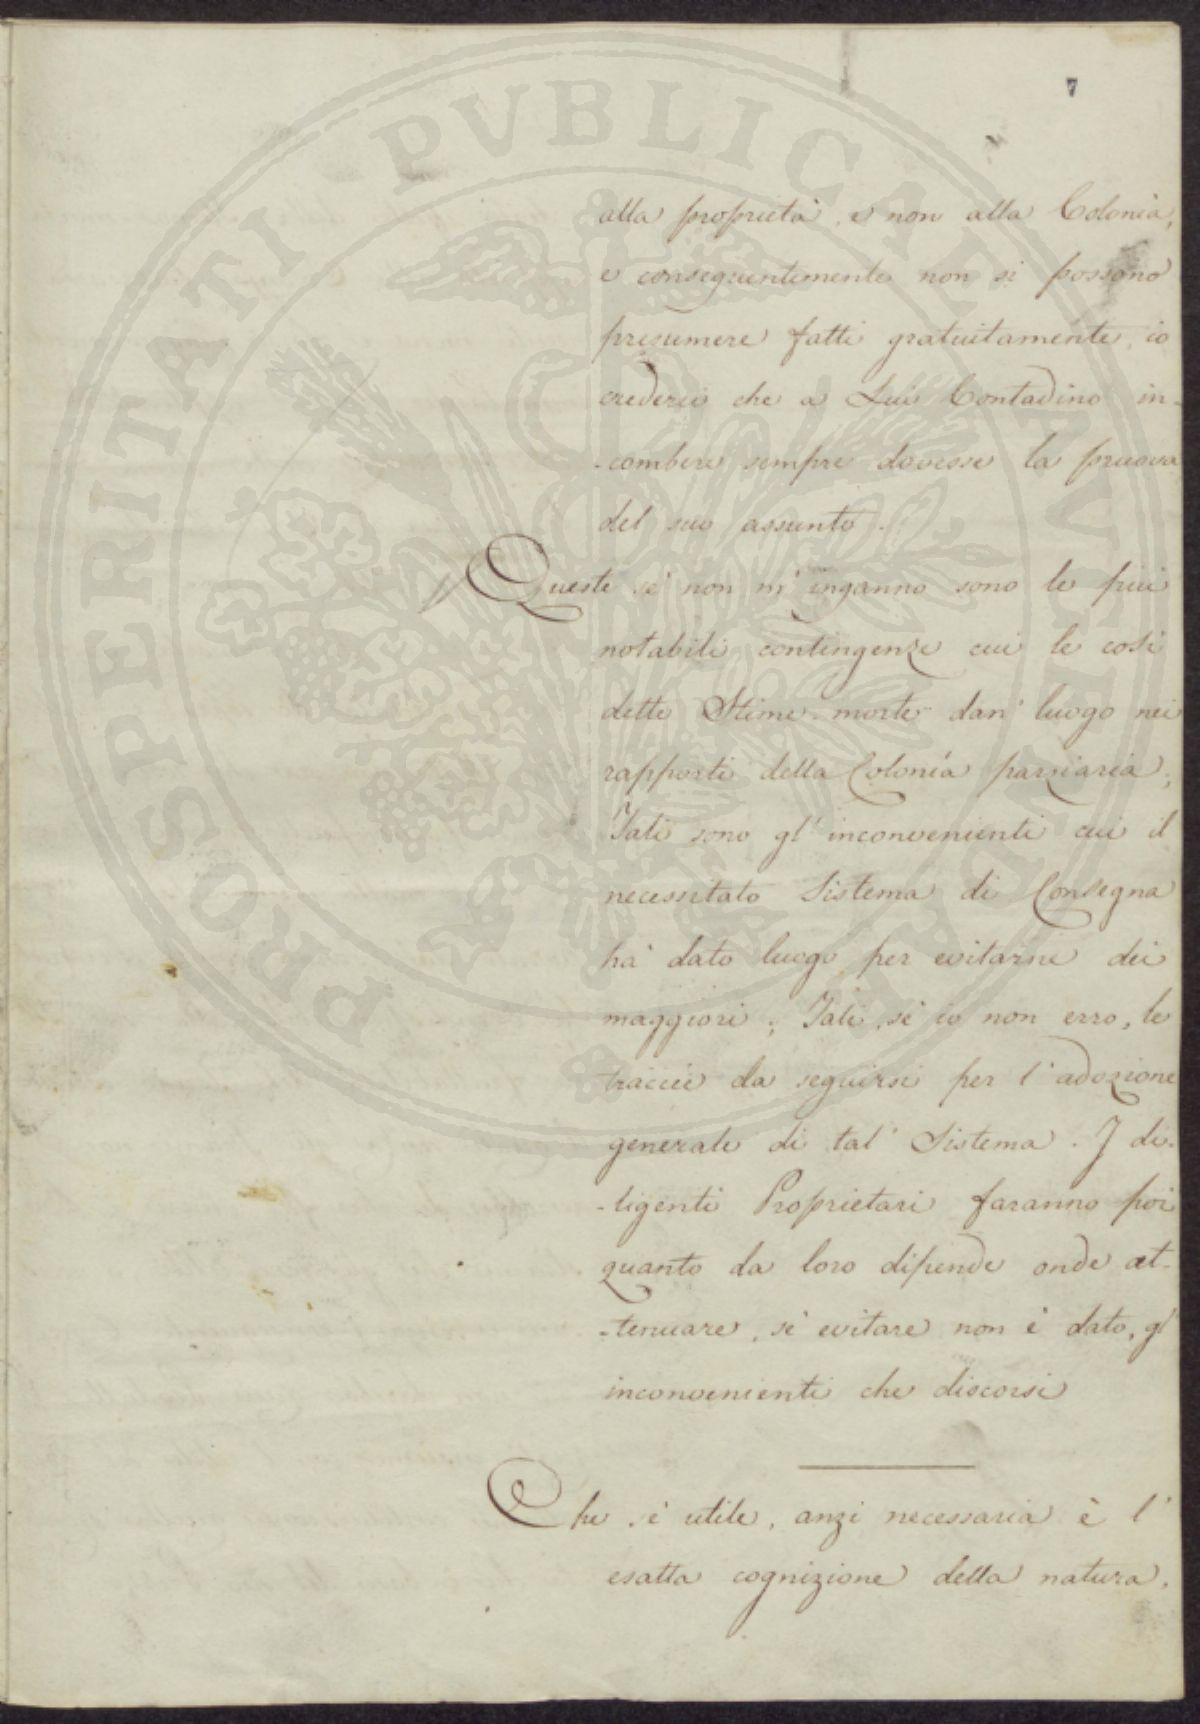 PROSPERITATI PVBLICAE AVGENDAE
7
alla proprietà, e non alla Colonia,
e conseguentemente non si possono
presumere fatti gratuitamente, io
crederei che a Lui Contadino in-
-combere sempre dovesse la pruova
del suo assunto.
// Queste sè non m'inganno sono le più
notabili contingenze cui le così
dette Stime morte dan' luogo nei
rapporti della Colonía parziaria;
Tali sono gl'inconvenienti cui il
necessitato Sistema di Consegna
hà dato luogo per evitarne dei
maggiori; Tali, sè io non erro, le
traccie da seguirsi per l'adozione
generale di tal' Sistema. I di-
-ligenti Proprietari faranno poi
quanto da loro dipende onde at-
-tenuare, sè evitare non è dato, gl'
inconvenienti che discorsi
Che sè utile, anzi necessaria è l'
esatta cognizione della natura,